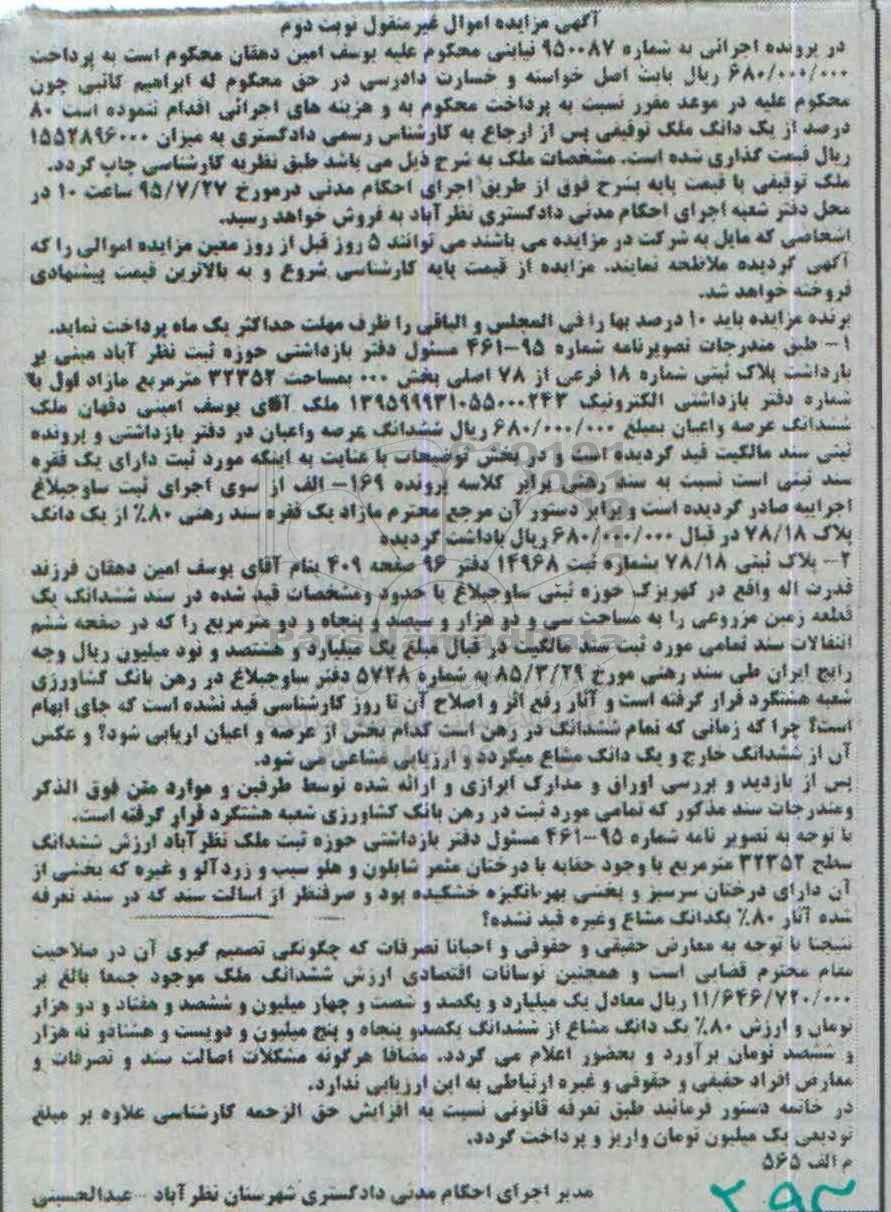 آگهی مزایده اموال غیرمنقول نوبت دوم
در پرونده اجرائی به شماره ۹۵۰۰۸۷ نیابتی محکوم علیه یوسف امین دهقان محکوم است به پرداخت
۶۸۰/۰۰۰/۰۰۰ ریال بابت اصل خواسته و خسارت دادرسی در حق محکوم له ابراهیم کاتبی چون
محکوم علیه در موعد مقرر نسبت به پرداخت محکوم به و هزینه های اجرائی اقدام ننموده است ۸۰
درصد از یک دانگ ملک توقیفی پس از ارجاع به کارشناس رسمی دادگستری به میزان ۱۵۵۲۸۹۶۰۰۰
ریال قیمت گذاری شده است. مشخصات ملک به شرح ذیل می باشد طبق نظریه کارشناسی چاپ گردد.
ملک توقیفی با قیمت پایه بشرح فوق از طریق اجرای احکام مدنی درمورخ ۹۵/۷/۲۷ ساعت ۱۰ در
محل دفتر شعبه اجرای احکام مدنی دادگستری نظرآباد به فروش خواهد رسید.
اشخاصی که مایل به شرکت در مزایده می باشند می توانند ۵ روز قبل از روز معین مزایده اموالی را که
آگهی گردیده ملاحظه نمایند. مزایده از قیمت پایه کارشناسی شروع و به بالاترین قیمت پیشنهادی
فروخته خواهد شد.
برنده مزایده باید ۱۰ درصد بها را فی المجلس و الباقی را ظرف مهلت حداکثر یک ماه پرداخت نماید.
۱- طبق مندرجات تصویرنامه شماره ۹۵-۴۶۱ مسئول دفتر بازداشتی حوزه ثبت نظر آباد مبنی بر
بازداشت پلاک ثبتی شماره ۱۸ فرعی از ۷۸ اصلی بخش ۰۰۰ بمساحت ۳۲۳۵۲ مترمربع مازاد اول با
شماره دفتر بازداشتی الکترونیک ۱۳۹۵۹۹۹۳۱۰۵۵۰۰۰۲۴۳ ملک آقای یوسف امینی دقهان ملک
ششدانگ عرصه واعیان بمبلغ ۶۸۰/۰۰۰/۰۰۰ ریال ششدانگ عرصه واعیان در دفتر بازداشتی و پرونده
ثبتی سند مالکیت قید گردیده است و در بخش توضیحات با عنایت به اینکه مورد ثبت دارای یک فقره
سند ثبتی است نسبت به سند رهنی برابر کلاسه پرونده ۱۶۹- الف از سوی اجرای ثبت ساوجبلاغ
اجراییه صادر گردیده است و برابر دستور آن مرجع محترم مازاد یک فقره سند رهنی ۸۰٪ از یک دانگ
پلاک ۷۸/۱۸ در قبال ۶۸۰/۰۰۰/۰۰۰ ریال باداشت گردیده
۲- پلاک ثبتی ۷۸/۱۸ بشماره ثبت ۱۴۹۶۸ دفتر ۹۶ صفحه ۴۰۹ بنام آقای یوسف امین دهقان فرزند
قدرت اله واقع در کهریزک حوزه ثبتی ساوجبلاغ با حدود ومشخصات قید شده در سند ششدانگ یک
قطعه زمین مزروعی را به مساحت سی و دو هزار و سیصد و پنجاه و دو مترمربع را که در صفحه ششم
انتقالات سند تمامی مورد ثبت سند مالکیت در قبال مبلغ یک میلیارد و هشتصد و نود میلیون ریال وجه
رایج ایران طی سند رهنی مورخ ۸۵/۳/۲۹ به شماره ۵۷۲۸ دفتر ساوجبلاغ در رهن بانگ کشاورزی
شعبه هشتگرد قرار گرفته است و آثار رفع اثر و اصلاح آن تا روز کارشناسی قید نشده است که جای ابهام
است؟ چرا که زمانی که تمام ششدانگ در رهن است کدام بخش از عرصه و اعیان اریابی شود؟ و عکس
آن از ششدانگ خارج و یک دانگ مشاع میگردد و ارزیابی مشاعی می شود.
پس از بازدید و بررسی اوراق و مدارک ابرازی و ارائه شده توسط طرفین و موارد متن فوق الذکر
ومندرجات سند مذکور که تمامی مورد ثبت در رهن بانگ کشاورزی شعبه هشتگرد قرار گرفته است.
با توجه به تصویر نامه شماره ۹۵-۴۶۱ مسئول دفتر بازداشتی حوزه ثبت ملک نظرآباد ارزش ششدانگ
سطح ۳۲۳۵۲ مترمربع با وجود حقابه با درختان مثمر شابلون و هلو سیب و زردآلو و غیره که بخشی از
آن دارای درختان سرسبز و بخشی بهرانگیزه خشکیده بود و صرفنظر از اسالت سند که در سند تعرفه
شده آثار ۸۰٪ یکدانگ مشاع وغیره قید نشده؟
نتیجتا با توجه به معارض حقیقی و حقوقی و احیانا تصرفات که چگونگی تصمیم گیری آن در صلاحیت
مقام محترم قضایی است و همچنین نوسانات اقتصادی ارزش ششدانگ ملک موجود جمعا بالغ بر
۱۱/۶۴۶/۷۲۰/۰۰۰ ریال معادل یک میلیارد و یکصد و شصت و چهار میلیون و ششصد و هفتاد و دو هزار
تومان و ارزش ۸۰٪ یک دانگ مشاع از ششدانگ یکصدو پنجاه و پنج میلیون و دویست و هشتادو نه هزار
و ششصد تومان برآورد و بحضور اعلام می گردد. مضافا هرگونه مشکلات اصالت سند و تصرفات و
معارض افراد حقیقی و حقوقی و غیره ارتباطی به این ارزیابی ندارد.
در خاتمه دستور فرمائند طبق تعرفه قانونی نسبت به افزایش حق الزحمه کارشناسی علاوه بر مبلغ
تودیعی یک میلیون تومان واریز و پرداخت گردد.
م الف ۵۶۵
مدیر اجرای احکام مدنی دادگستری شهرستان نظرآباد - عبدالحسینی
ParsNamadData